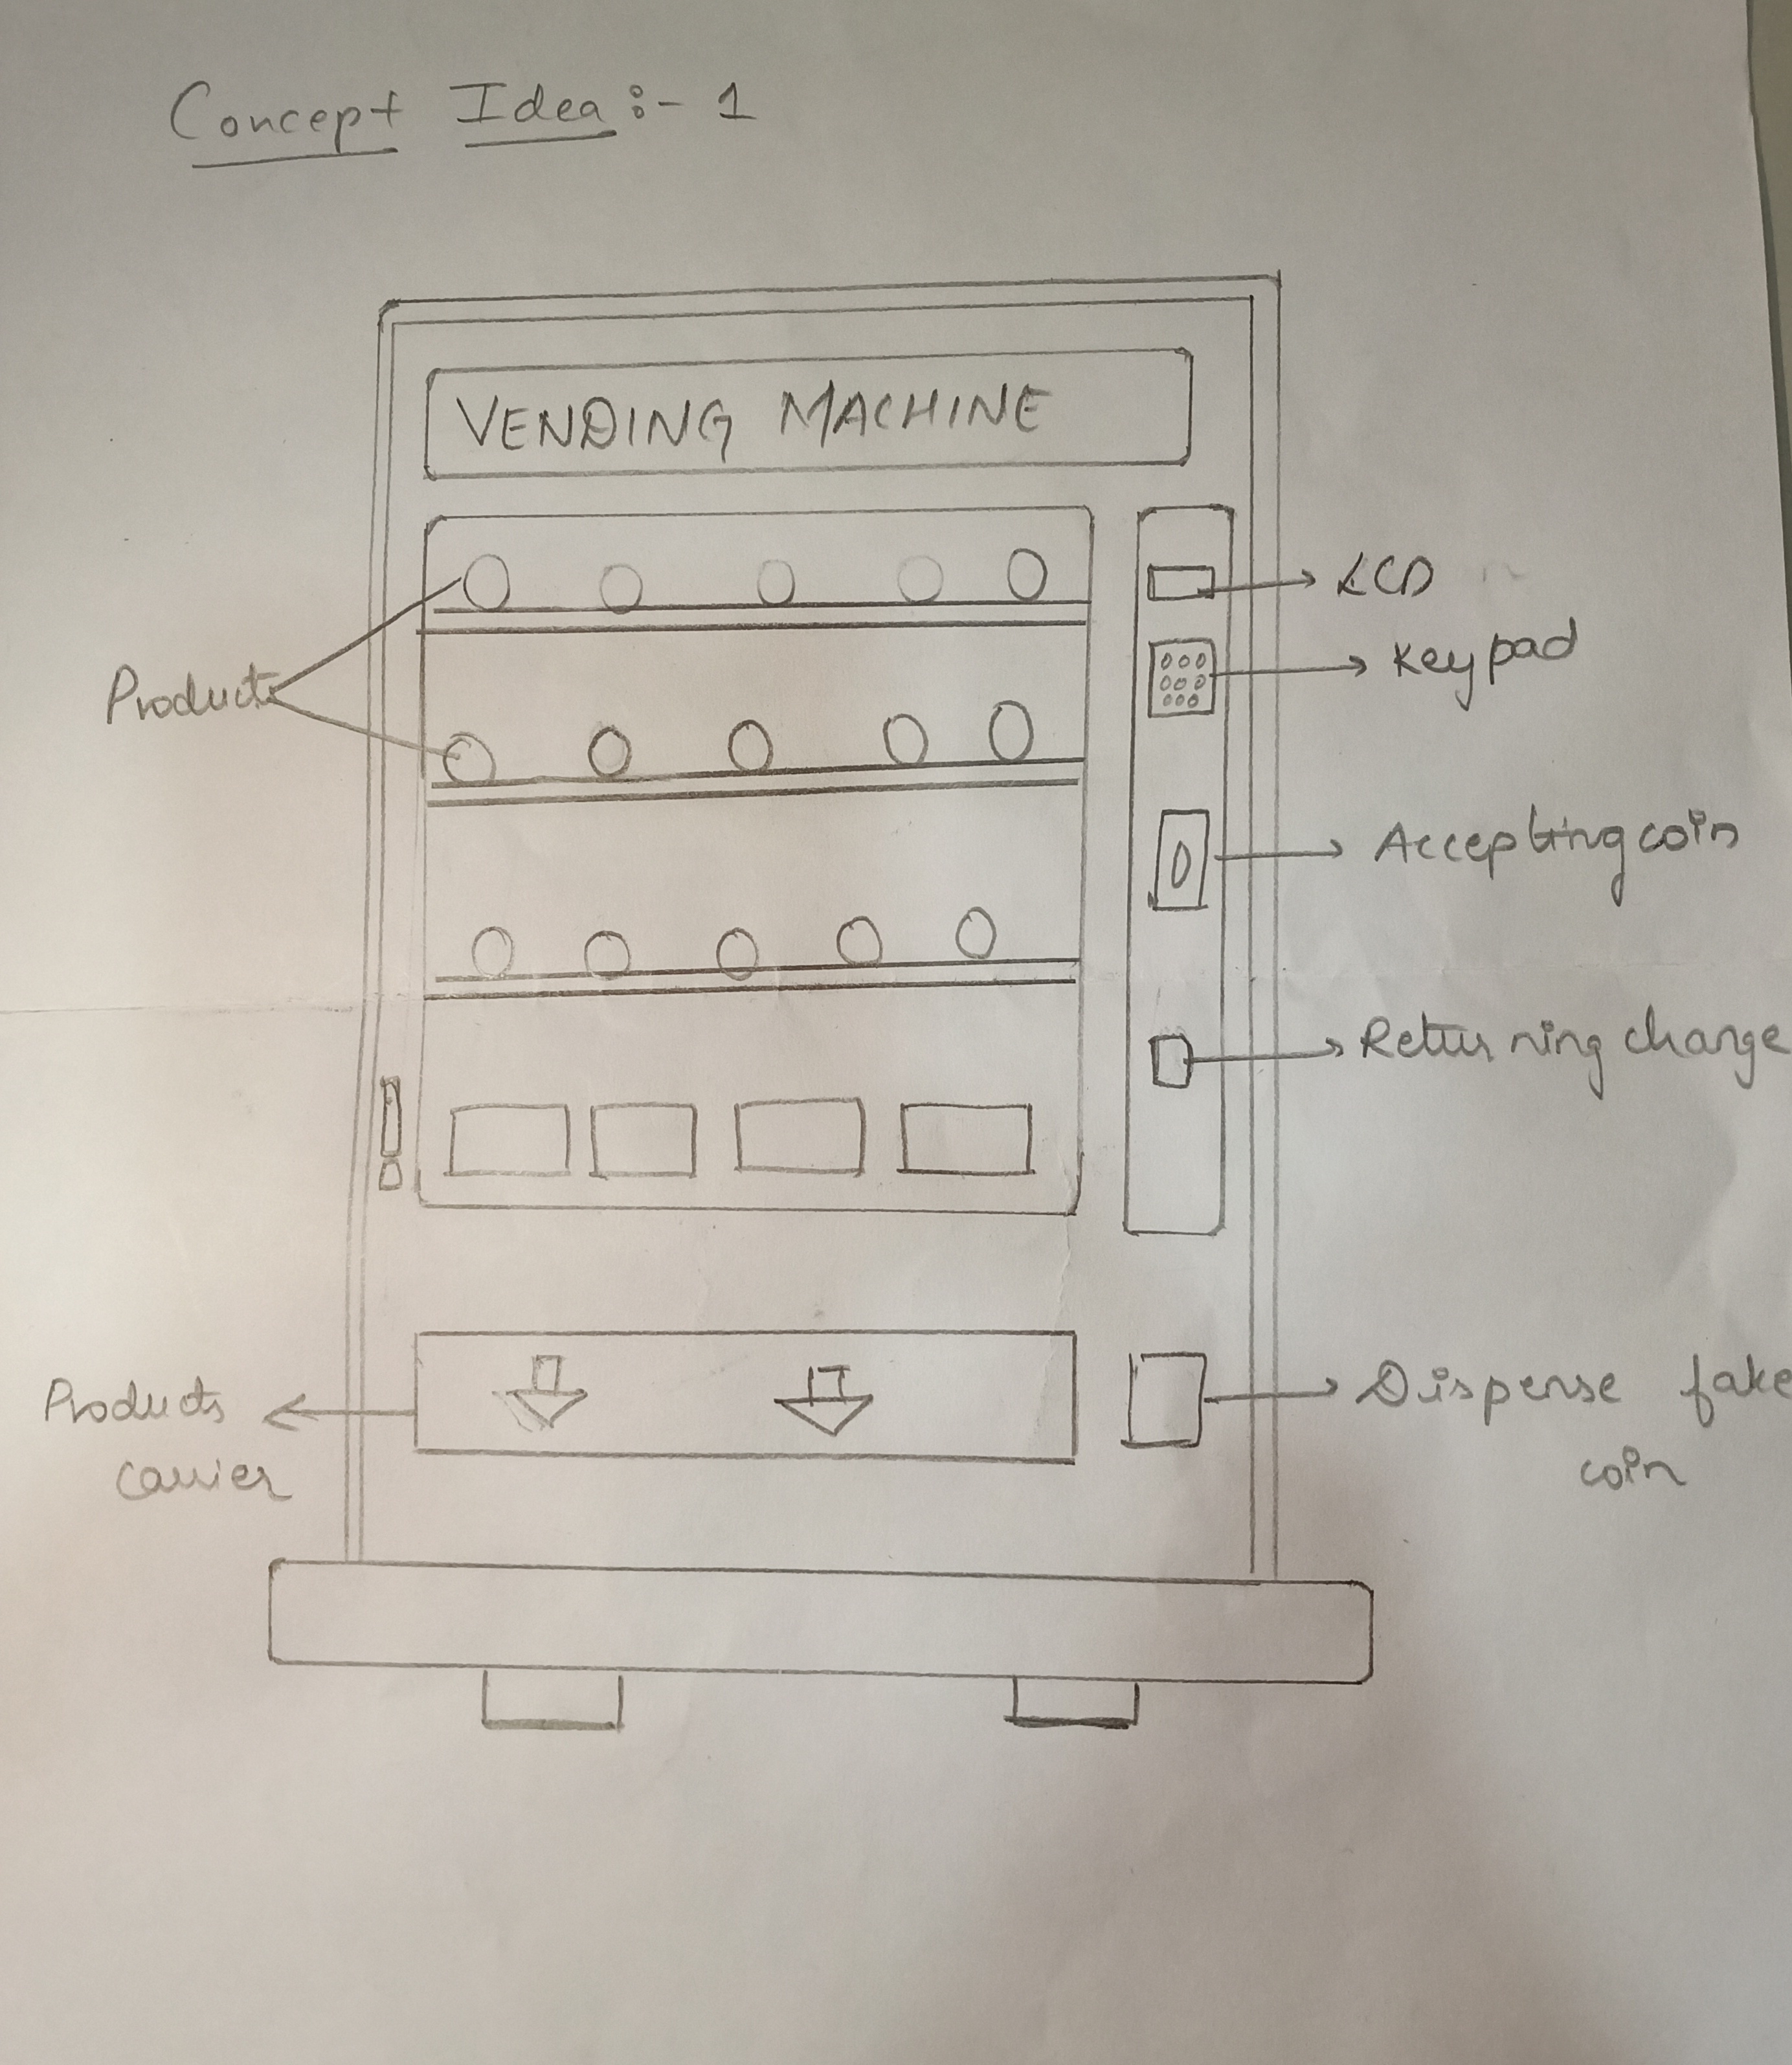 Concept Idea :- 1
VENDING MACHINE
LCD
Keypad
Products
Accepting coin
Returning change
Products
carrier
Dispense fake
coin